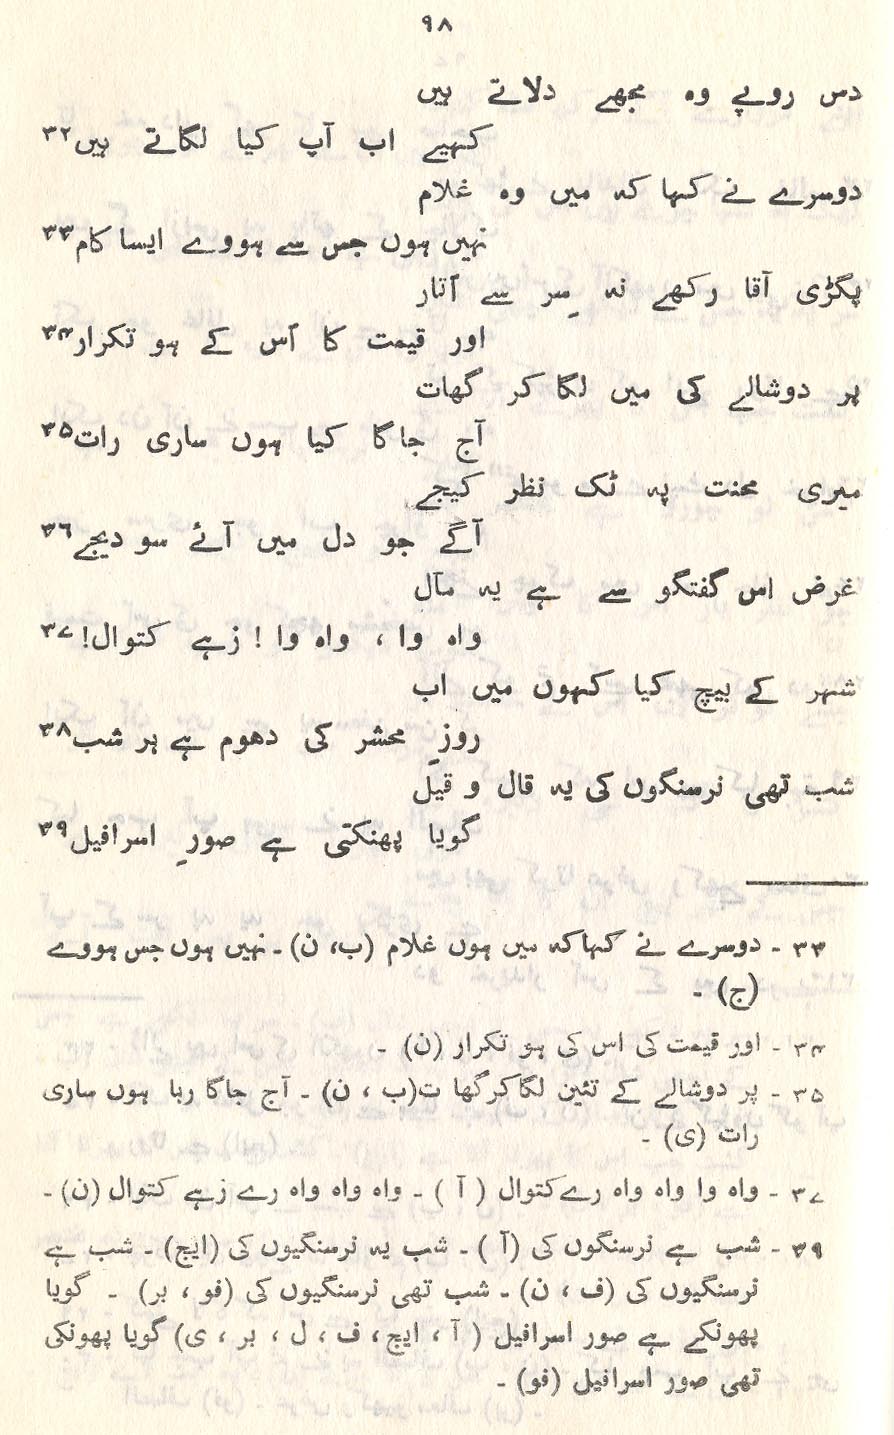 ۹۸
دس روپے وہ مجھے دلاتے ہیں
کہیے اب آپ کیا لگاتے ہیں۳۲
دوسرے نے کہا کہ میں وہ غلام
نہیں ہوں جس سے ہووے ایسا کام۳۳
پگڑی آقا رکھے نہ سِر سے اُتار
اور قیمت کا اُس کے ہو تکرار۳۴
پر دوشالے کی میں لگا کر گھات
آج جاگا کیا ہوں ساری رات۳۵
میری محنت پہ ٹک نظر کیجے
آگے جو دل میں آئے سو دیجے۳۶
غرض اس گفتگو سے ہے یہ مآل
واہ وا ، واہ وا ! زہے کتوال!۳۷
شہر کے بیچ کیا کہوں میں اب
روزِ محشر کی دھوم ہے ہر شب۳۸
شب تھی نرسنگوں کی یہ قال و قیل
گویا پھنکتی ہے صورِ اسرافیل۳۹
۳۳ - دوسرے نے کہا کہ میں ہوں غلام (ب، ن) - نہیں ہوں جس ہووے
(ج) -
۳۴ - اور قیمت کی اس کی ہو تکرار (ن) -
۳۵ - پر دوشالے کے تئین لگا کر گھا ت(ب ، ن) - آج جاگا رہا ہوں ساری
رات (ی) -
۳۷ - واہ وا واہ واہ رے کتوال ( آ ) - واہ واہ واہ رے زہے کتوال (ن) -
۳۹ - شب ہے نرسنگوں کی (آ ) - شب یہ نرسنگیوں کی (ایچ) - شب ہے
نرسنگیوں کی (ف ، ن) - شب تھی نرسنگیوں کی (فو ، بر) - گویا
پھونکے ہے صور اسرافیل ( آ ، ایچ ، ف ، ل ، بر ، ی) گویا پھونکی
تھی صور اسرافیل (فو) -